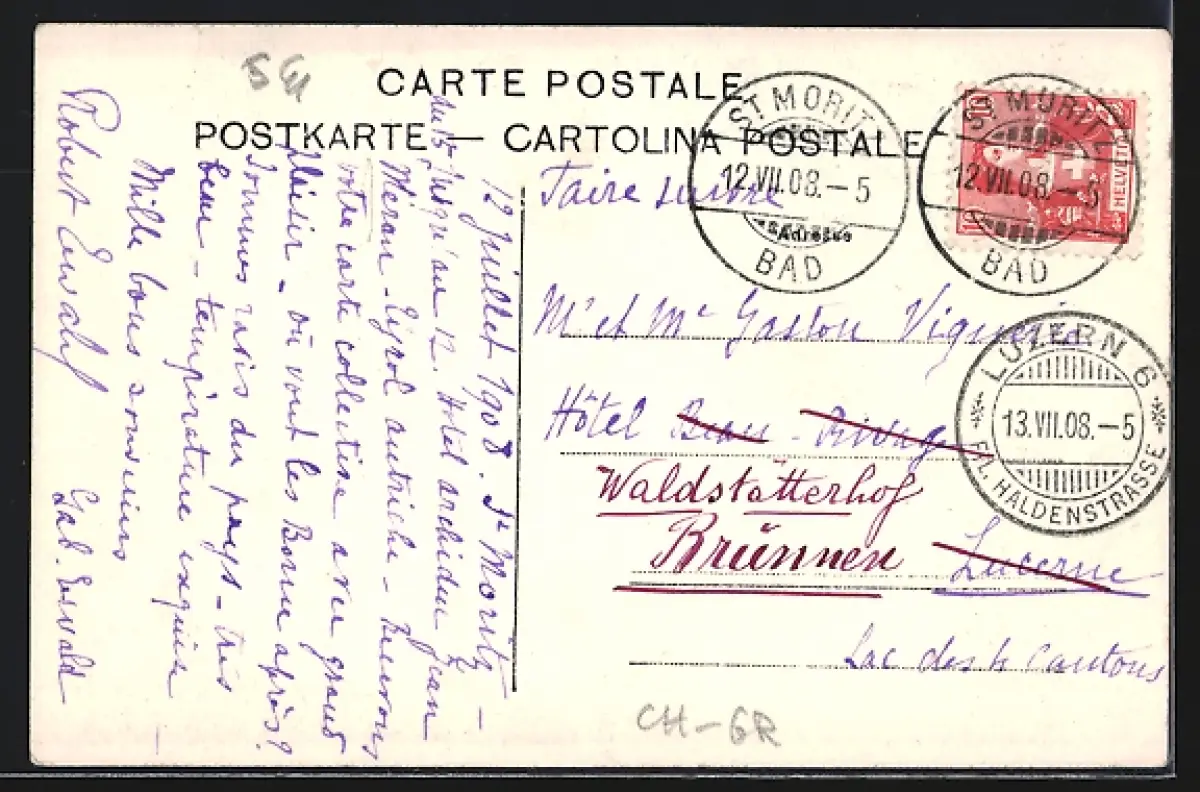 S GU
CARTE POSTALE
POSTKARTE — CARTOLINA POSTALE
ST MORITZ
12.VII.08.–5
BAD
ST MORITZ
12.VII.08.–5
BAD
10
HELVETIA
10
Faire suivre
Adresse
Mr et Me Gaston
Hôtel Beau-Rivage
Waldstätterhof
Brünnen Lucerne
Lac des 4 Cantons
LUZERN 6
13.VII.08.–5
FIL. HALDENSTRASSE
CH-GR
12 juillet 1908. St Moritz –
jusqu'au 12. Hôtel archiduc Jean
Méran – Tyrol autriche – Recevons
votre carte collective avec grand
plaisir – où vont les Bonn après?
Sommes ravis du pays – très
beau – température exquise
Mille bons souvenirs
Robert Ewald Gab. Ewald